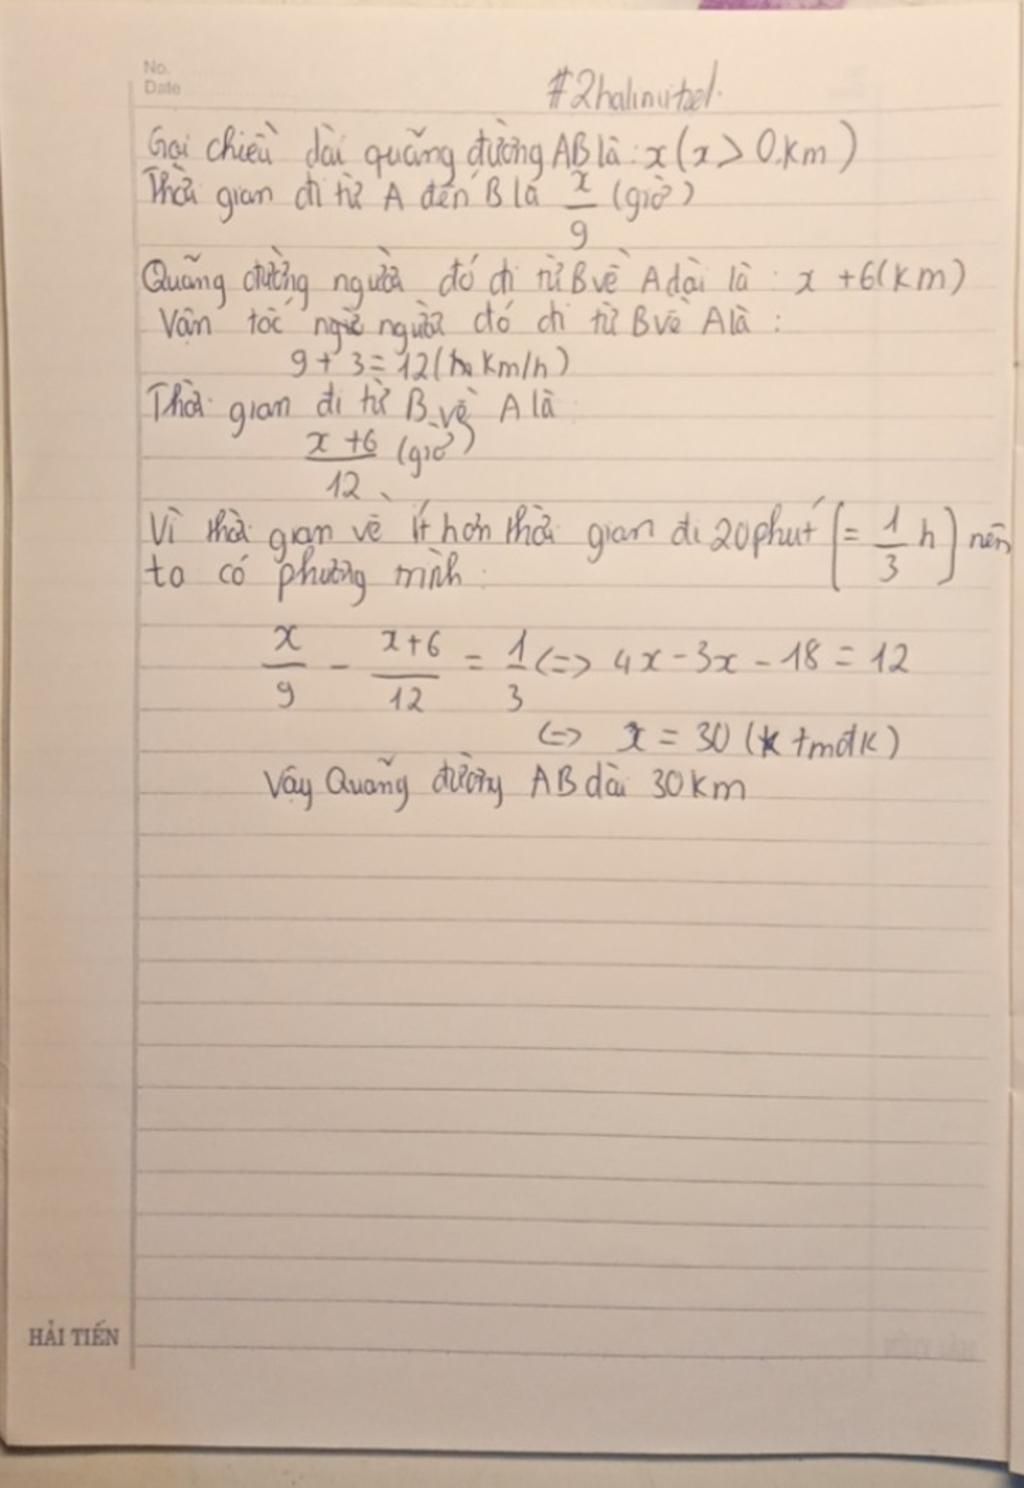 No.
Date
Gọi chiều dài quãng đường AB là: x (x > 0. km)
Thời gian đi từ A đến B là x/9 (giờ)
Quãng đường người đó đi từ B về A dài là: x + 6 (km)
Vận tốc người đó đi từ B về A là:
9 + 3 = 12 (km/h)
Thời gian đi từ B về A là
x + 6/12 (giờ)
Vì thời gian về ít hơn thời gian đi 20 phút (= 1/3 h) nên
ta có phương trình:
x/9 - x+6/12 = 1/3 <=> 4x - 3x - 18 = 12
<=> x = 30 (tmđk)
Vậy Quãng đường AB dài 30 km
HẢI TIẾN